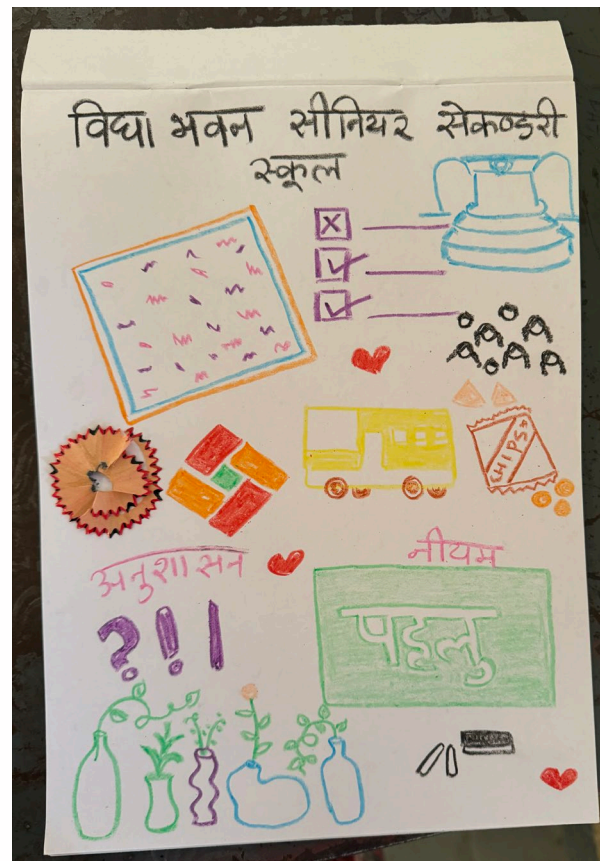 विद्या भवन सीनियर सेकण्डरी
स्कूल
CHIPS
अनुशासन
नीयम
?!।
पहलु